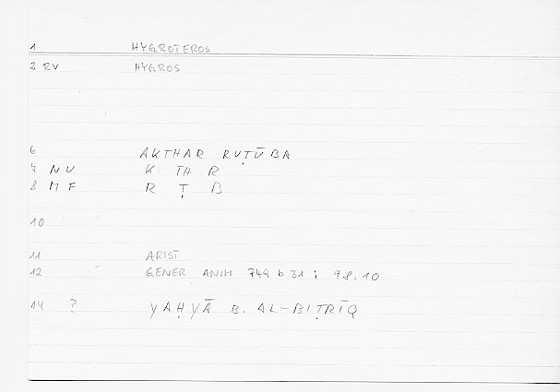 1 HYGROTEROS
2 RV HYGROS
6 AKTHAR RUṬŪBA
7 NU K TH R
8 MF R Ṭ B
10
11 ARIST
12 GENER ANIM 749 b 31 ; 98.10
14 ? YAḤYĀ B. AL-BIṬRĪQ